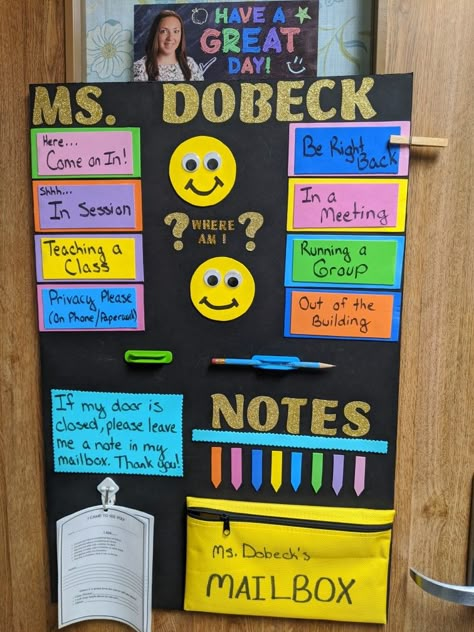 HAVE A
GREAT
DAY!
MS. DOBECK
Here...
Come on In!
Shhh...
In Session
Teaching a
Class
Privacy Please
(On Phone/Paperwork)
? WHERE ?
AM I
Be Right
Back
In a
Meeting
Running a
Group
Out of the
Building
If my door is
closed, please leave
me a note in my
mailbox. Thank you!
NOTES
I CAME TO SEE YOU
Ms. Dobeck's
MAILBOX